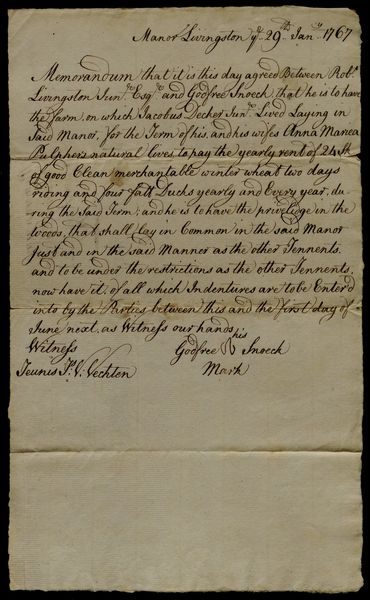 Manor Livingston ye 29th Jany 1767
Memorandum that it is this day agreed Between Robt
Livingston Junr Esqr and Godfree Snoeck that he is to have
the farm, on which Jacobus Decker Junr Lived Laying in
Said Manor, for the Term of his, and his wifes Anna Mariea
Pulphers natural lives to pay the yearly rent of 24 Sh
of good Clean merchantable winter wheat two days
riding and four fatt Ducks yearly and Every year, du
ring the Said Term; and he is to have the priviledge in the
woods, that shall lay in Common in the said Manor
Just and in the said Manner as the other Tennents.
and to be under the restrictions as the other Tennents,
now have it, of all which Indentures are to be Enter'd
into by the Parties between this and the first day of
June next, as Witness our hands,
Witness
his
Godfree Snoeck
Teunis V. Vechten
Mark